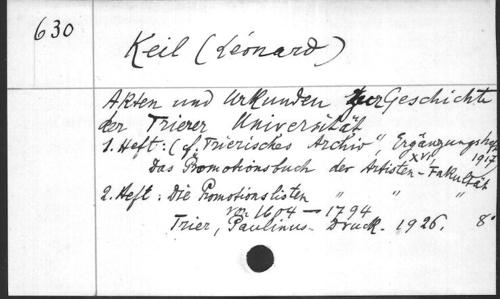 630
Keil (Léonard)
Akten und Urkunden zur Geschichte
der Trierer Universität
1. Heft: (cf. Trierisches Archiv", Ergänzungsheft
XVI, 1917)
Das Promotionsbuch der Artisten-Fakultät
2. Heft: Die Promotionslisten " " "
v. 1604 — 1794
Trier, Paulinus-Druck. 1926. 8°